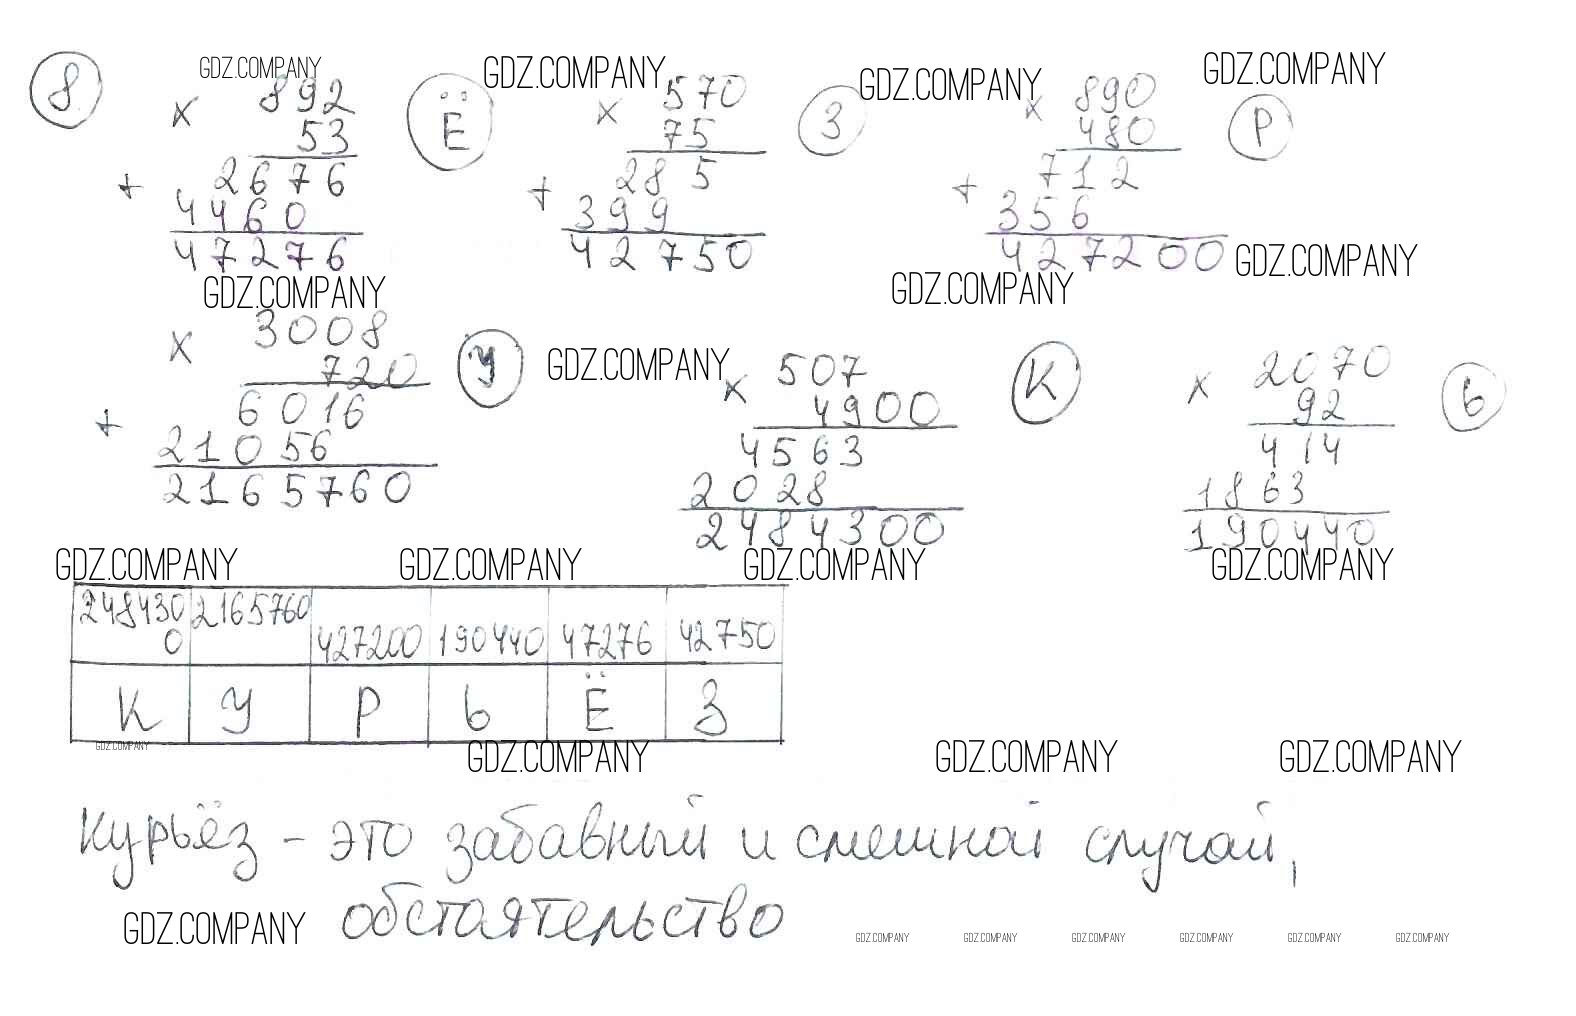 8
GDZ.COMPANY GDZ.COMPANY GDZ.COMPANY GDZ.COMPANY
× 892 Ё × 570 З × 890 Р
53 75 480
+ 2676 + 285 + 712
4460 399 356
47276 42750 427200 GDZ.COMPANY
GDZ.COMPANY GDZ.COMPANY
× 3008 У GDZ.COMPANY × 507 К × 2070 Ь
720 4900 92
+ 6016 4563 414
21056 2028 1863
2165760 2484300 190440
GDZ.COMPANY GDZ.COMPANY GDZ.COMPANY GDZ.COMPANY
2484300 2165760 427200 190440 47276 42750
К У Р Ь Ё З
GDZ.COMPANY GDZ.COMPANY GDZ.COMPANY GDZ.COMPANY
Курьёз – это забавный и смешной случай,
GDZ.COMPANY обстоятельство
GDZ.COMPANY GDZ.COMPANY GDZ.COMPANY GDZ.COMPANY GDZ.COMPANY GDZ.COMPANY